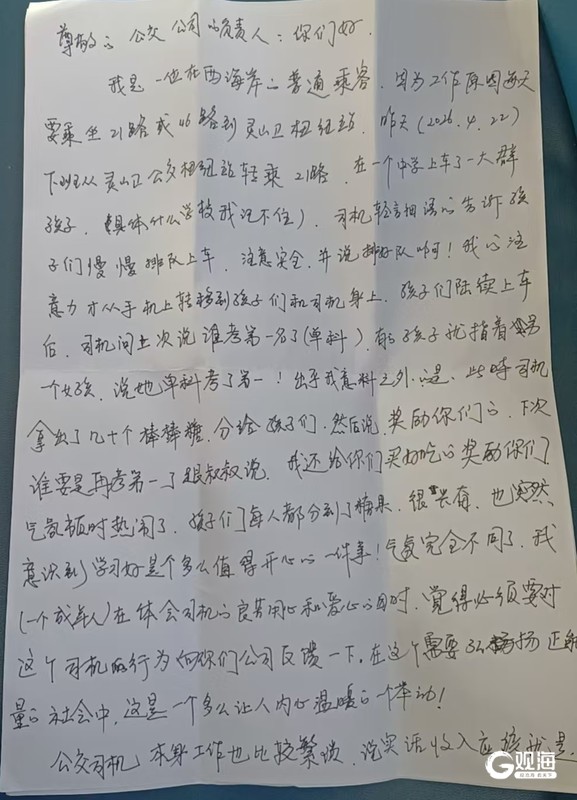 尊敬的公交公司的负责人：你们好.
我是一位在西海岸的普通乘客，因为工作原因每天
要乘坐21路或46路到灵山卫枢纽站，昨天(2026.4.22)
下班从灵山卫公交枢纽站转乘21路，在一个中学上车了一大群
孩子，(具体什么学校我记不住)，司机轻言细语的告诉孩
子们慢慢排队上车，注意安全，并说排好队啊！我的注
意力才从手机上转移到孩子们和司机身上，孩子们陆续上车
后，司机问上次说谁考第一名了(单科)，有的孩子就指着另
一个女孩，说她单科考了第一！出乎我意料之外的是，此时司机
拿出了几十个棒棒糖，分给孩子们，然后说，奖励你们的，下次
谁要是再考第一了跟叔叔说，我还给你们买好吃的奖励你们
气氛顿时热闹了，孩子们每人都分到了糖果，很兴奋，也突然
意识到学习好是个多么值得开心的一件事！气氛完全不同了，我
(一个成年人)在体会司机的良苦用心和爱心的同时，觉得必须要对
这个司机的行为向你们公司反馈一下，在这个需要弘扬正能
量的社会中，这是一个多么让人内心温暖的一个举动！
公交司机本身工作也比较繁琐，说实话收入应该就是
观海